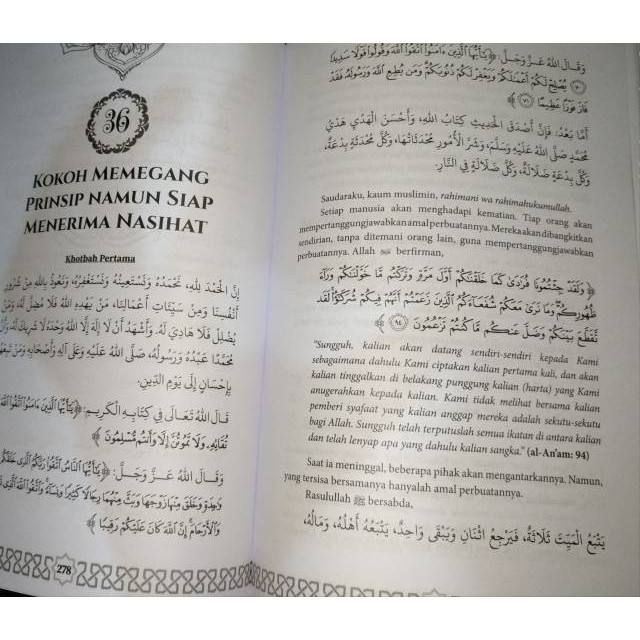 36
KOKOH MEMEGANG
PRINSIP NAMUN SIAP
MENERIMA NASIHAT
Khotbah Pertama
إِنَّ الْحَمْدَ لِلهِ، نَحْمَدُهُ وَنَسْتَعِينُهُ وَنَسْتَغْفِرُهُ، وَنَعُوذُ بِاللهِ مِنْ شُرُورِ
أَنْفُسِنَا وَمِنْ سَيِّئَاتِ أَعْمَالِنَا، مَنْ يَهْدِهِ اللهُ فَلَا مُضِلَّ لَهُ، وَمَنْ
يُضْلِلْ فَلَا هَادِيَ لَهُ. وَأَشْهَدُ أَنْ لَا إِلَهَ إِلَّا اللهُ وَحْدَهُ لَا شَرِيكَ لَهُ،
مُحَمَّدًا عَبْدُهُ وَرَسُولُهُ، صَلَّى اللهُ عَلَيْهِ وَعَلَى آلِهِ وَأَصْحَابِهِ وَمَنْ تَبِعَهُمْ
بِإِحْسَانٍ إِلَى يَوْمِ الدِّينِ.
قَالَ اللهُ تَعَالَى فِي كِتَابِهِ الْكَرِيمِ: ﴿يَٰٓأَيُّهَا ٱلَّذِينَ ءَامَنُوا۟ ٱتَّقُوا۟ ٱللَّهَ
تُقَاتِهِۦ وَلَا تَمُوتُنَّ إِلَّا وَأَنتُم مُّسْلِمُونَ﴾
وَقَالَ اللهُ عَزَّ وَجَلَّ: ﴿يَٰٓأَيُّهَا ٱلنَّاسُ ٱتَّقُوا۟ رَبَّكُمُ ٱلَّذِى خَلَقَكُم
وَٰحِدَةٍ وَخَلَقَ مِنْهَا زَوْجَهَا وَبَثَّ مِنْهُمَا رِجَالًا كَثِيرًا وَنِسَآءً وَٱتَّقُوا۟ ٱللَّهَ ٱلَّذِى
وَٱلْأَرْحَامَ إِنَّ ٱللَّهَ كَانَ عَلَيْكُمْ رَقِيبًا﴾
278
وَقَالَ اللهُ عَزَّ وَجَلَّ: ﴿يَٰٓأَيُّهَا ٱلَّذِينَ ءَامَنُوا۟ ٱتَّقُوا۟ ٱللَّهَ وَقُولُوا۟ قَوْلًا سَدِيدًا
٧٠ يُصْلِحْ لَكُمْ أَعْمَٰلَكُمْ وَيَغْفِرْ لَكُمْ ذُنُوبَكُمْ وَمَن يُطِعِ ٱللَّهَ وَرَسُولَهُۥ فَقَدْ
فَازَ فَوْزًا عَظِيمًا ٧١﴾
أَمَّا بَعْدُ، فَإِنَّ أَصْدَقَ الْحَدِيثِ كِتَابُ اللهِ، وَأَحْسَنَ الْهَدْيِ هَدْيُ
مُحَمَّدٍ صَلَّى اللهُ عَلَيْهِ وَسَلَّمَ، وَشَرَّ الْأُمُورِ مُحْدَثَاتُهَا، وَكُلَّ مُحْدَثَةٍ بِدْعَةٌ،
وَكُلَّ بِدْعَةٍ ضَلَالَةٌ، وَكُلَّ ضَلَالَةٍ فِي النَّارِ.
Saudaraku, kaum muslimin, rahimani wa rahimahukumullah.
Setiap manusia akan menghadapi kematian. Tiap orang akan
mempertanggungjawabkan amal perbuatannya. Mereka akan dibangkitkan
sendirian, tanpa ditemani orang lain, guna mempertanggungjawabkan
perbuatannya. Allah ﷻ berfirman,
﴿وَلَقَدْ جِئْتُمُونَا فُرَٰدَىٰ كَمَا خَلَقْنَٰكُمْ أَوَّلَ مَرَّةٍ وَتَرَكْتُم مَّا خَوَّلْنَٰكُمْ وَرَآءَ
ظُهُورِكُمْ وَمَا نَرَىٰ مَعَكُمْ شُفَعَآءَكُمُ ٱلَّذِينَ زَعَمْتُمْ أَنَّهُمْ فِيكُمْ شُرَكَٰٓؤُا۟ لَقَد
تَّقَطَّعَ بَيْنَكُمْ وَضَلَّ عَنكُم مَّا كُنتُمْ تَزْعُمُونَ ٩٤﴾
"Sungguh, kalian akan datang sendiri-sendiri kepada Kami
sebagaimana dahulu Kami ciptakan kalian pertama kali, dan akan
kalian tinggalkan di belakang punggung kalian (harta) yang Kami
anugerahkan kepada kalian. Kami tidak melihat bersama kalian
pemberi syafaat yang kalian anggap mereka adalah sekutu-sekutu
bagi Allah. Sungguh telah terputuslah semua ikatan di antara kalian
dan telah lenyap apa yang dahulu kalian sangka." (al-An'am: 94)
Saat ia meninggal, beberapa pihak akan mengantarkannya. Namun,
yang tersisa bersamanya hanyalah amal perbuatannya.
Rasulullah ﷺ bersabda,
يَتْبَعُ الْمَيِّتَ ثَلَاثَةٌ، فَيَرْجِعُ اثْنَانِ وَيَبْقَى وَاحِدٌ، يَتْبَعُهُ أَهْلُهُ، وَمَالُهُ،